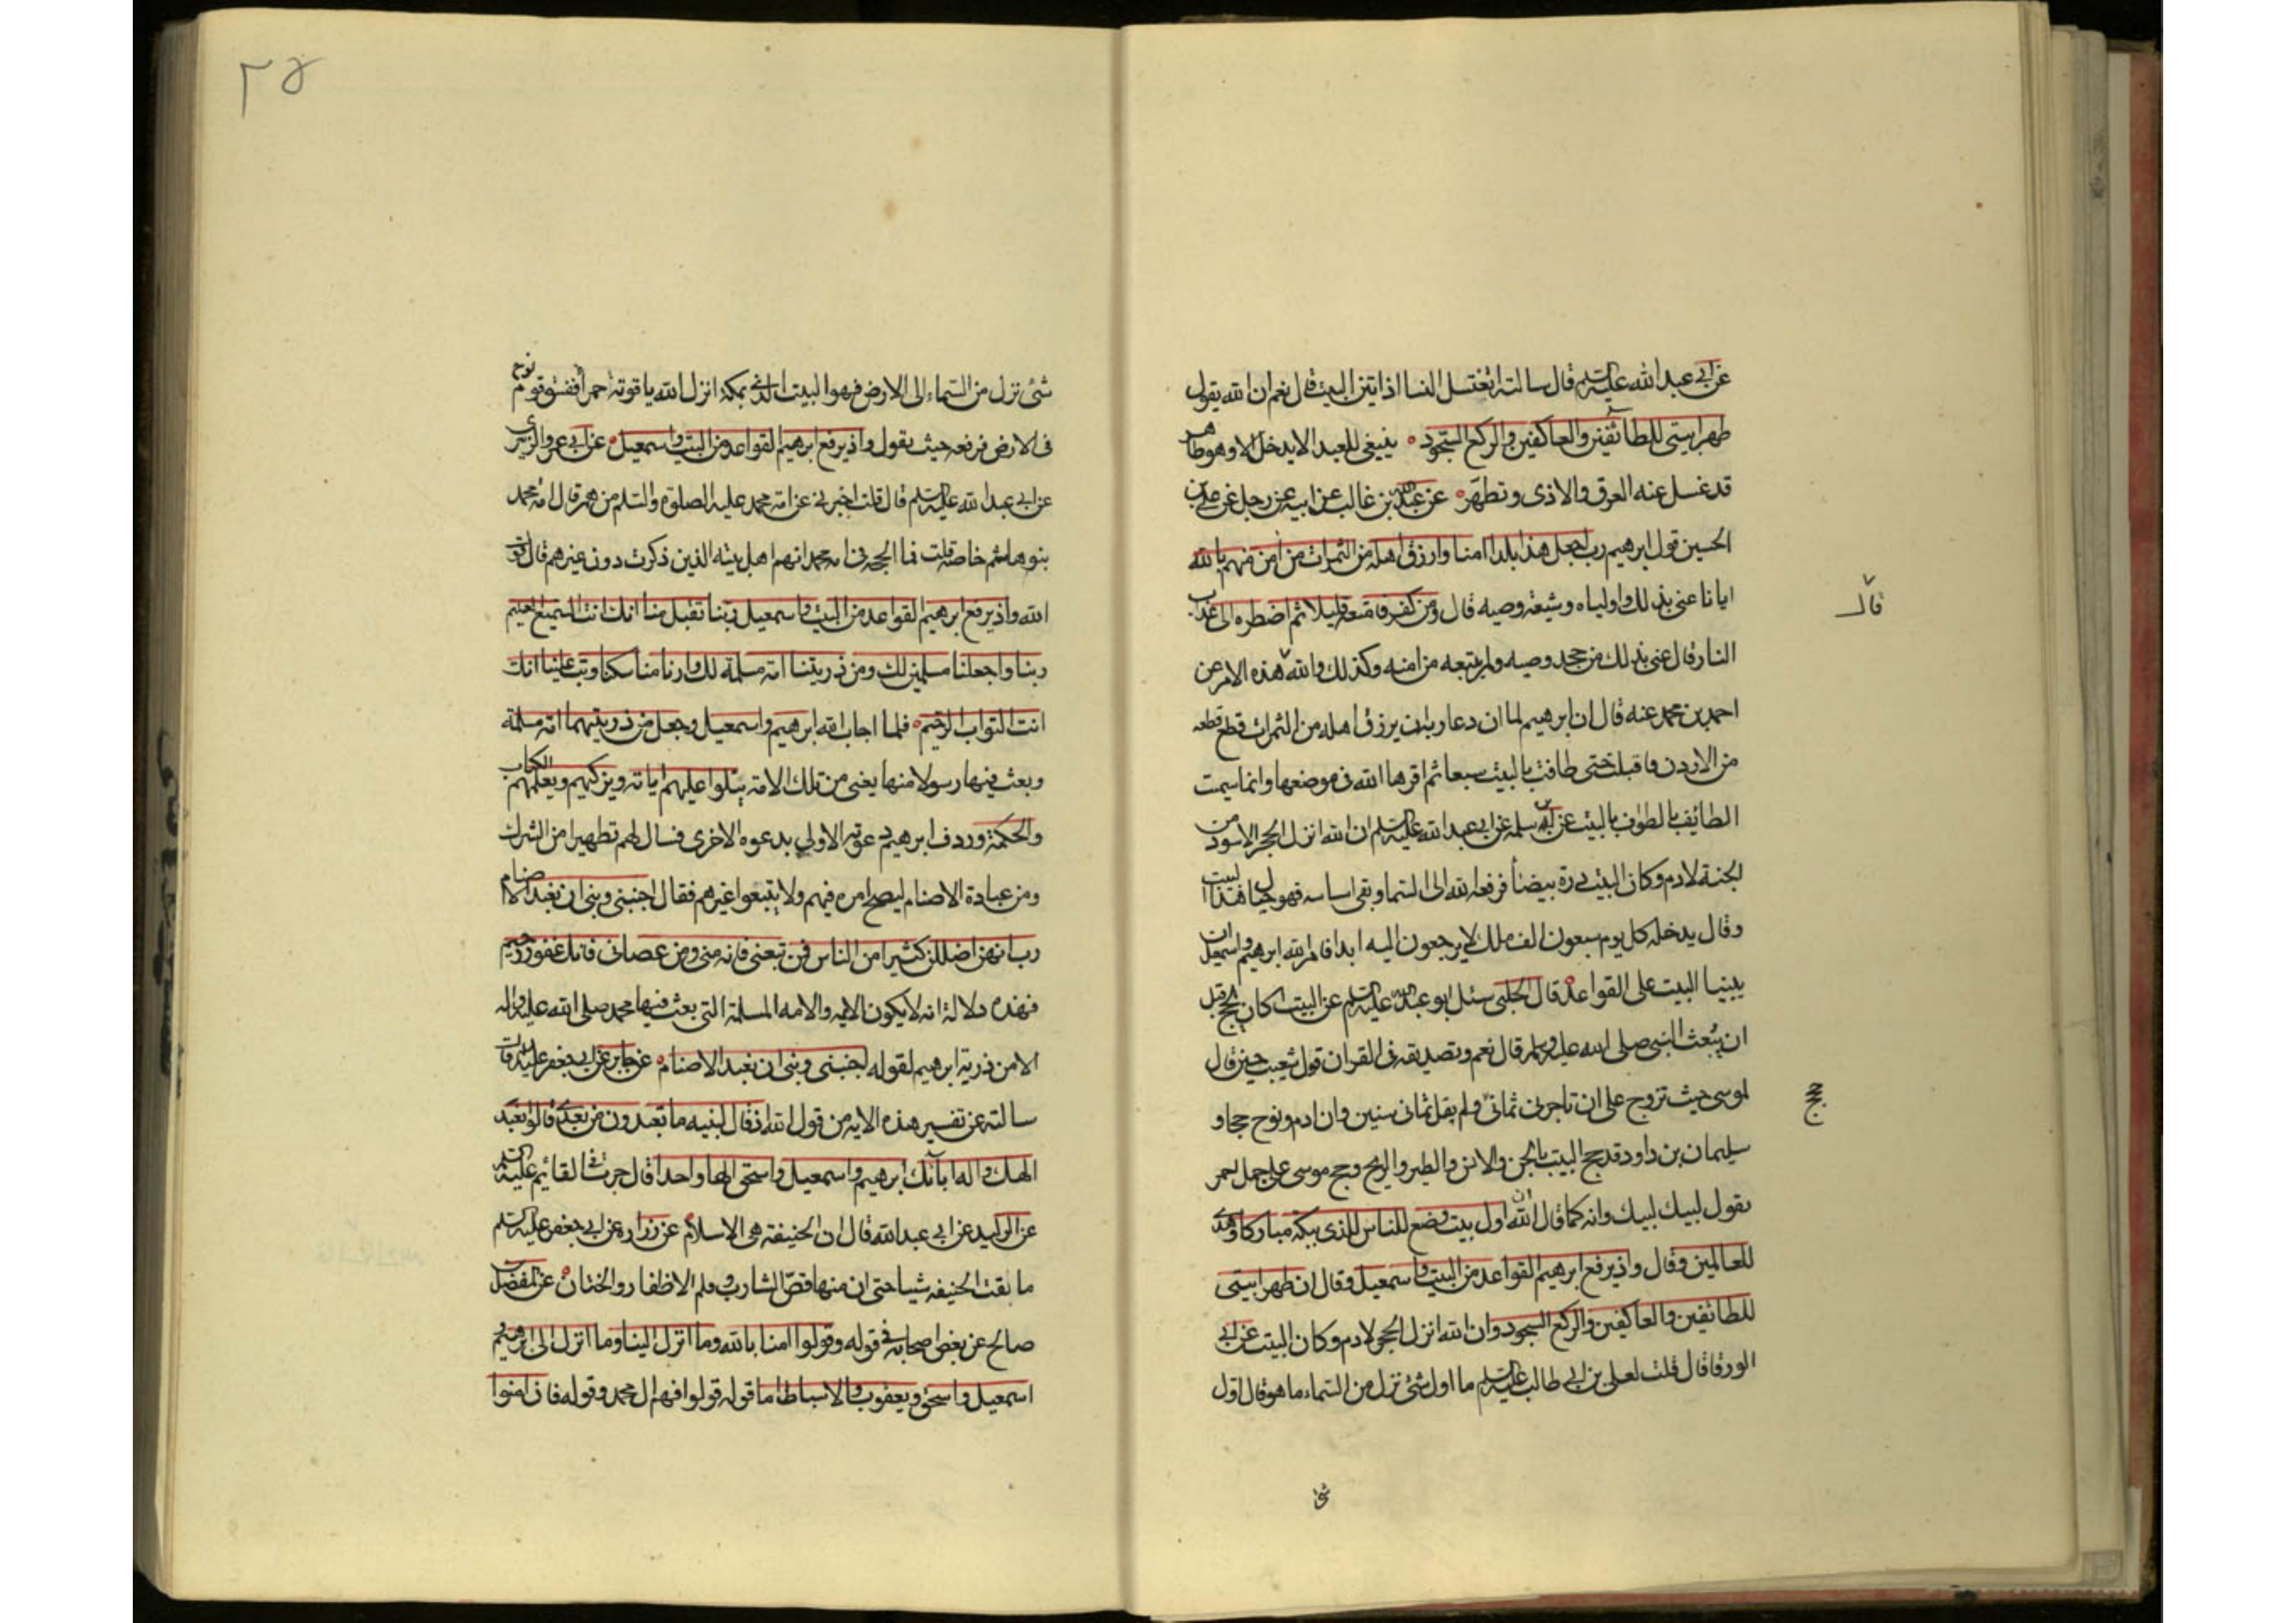 عن ابى عبد الله عليه السلم قال سالته اتغتسل النسا اذا اتين البيت قال نعم ان الله يقول
طهرا بيتى للطائفين والعاكفين والركع السجود ينبغى للعبد الا يدخل الا وهو طاهر
قد غسل عنه العرق والاذى وتطهر عن عبد الله بن غالب عن ابيه عن رجل عن على بن
الحسين قول ابرهيم رب اجعل هذا بلدا امنا وارزق اهله من الثمرات من امن منهم بالله
ايانا عنى بذلك واولياه وشيعة وصيه قال ومن كفر فامتعه قليلا ثم اضطره الى عذاب
قال
النار قال عنى بذلك من جحد وصيه ولم يتبعه من امته وكذلك والله هذه الامر عن
احمد بن محمد عنه قال ان ابرهيم لما ان دعا ربه ان يرزق اهله من الثمرات قطع قطعه
من الاردن فاقبلت حتى طافت بالبيت سبعا ثم اقرها الله فى موضعها وانما سميت
الطائف بالطواف بالبيت عن ابى سلمه عن ابى عبد الله عليه السلم ان الله انزل الحجر الاسود من
الجنة لادم وكان البيت درة بيضا فرفعه الله الى السما وبقى اساسه فهو حيال هذا البيت
وقال يدخله كل يوم سبعون الف ملك لا يرجعون اليه ابدا فامر الله ابرهيم واسمعيل ان
يبنيا البيت على القواعد قال الحلبى سئل ابو عبد الله عليه السلم عن البيت اكان يحج قبل
ان يبعث النبى صلى الله عليه وسلم قال نعم وتصديقه فى القران قول شعيب حين قال
لموسى حيث تزوج على ان تاجرنى ثمانى ولم يقل ثمانى سنين وان ادم ونوح حجا و
حجج
سليمان بن داود قد حج البيت بالجن والانس والطير والريح وحج موسى على جمل احمر
يقول لبيك لبيك وانه كما قال الله ان اول بيت وضع للناس للذى ببكة مباركا وهدى
للعالمين وقال واذ يرفع ابرهيم القواعد من البيت واسمعيل وقال ان طهرا بيتى
للطائفين والعاكفين والركع السجود وان الله انزل الحجر لادم وكان البيت عن ابى
الورقا قال قلت لعلى بن ابى طالب عليه السلم ما اول شئ نزل من السماء ما هو قال اول
شئ
٢٥
شئ نزل من السماء الى الارض فهو البيت الذى بمكة انزل الله ياقوتة احمرا ففسق قوم نوح
فى الارض فرفعه حيث يقول واذ يرفع ابرهيم القواعد من البيت واسمعيل عن ابى عمرو الزبيرى
عن ابى عبد الله عليه السلم قال قلت اخبرنى عن امة محمد عليه الصلوة والسلم من هم قال امة محمد
بنو هاشم خاصة قلت فما الحجة فى امة محمد انهم اهل بيته الذين ذكرت دون غيرهم قال قول
الله واذ يرفع ابرهيم القواعد من البيت واسمعيل ربنا تقبل منا انك انت السميع العليم
ربنا واجعلنا مسلمين لك ومن ذريتنا امة مسلمة لك وارنا مناسكنا وتب علينا انك
انت التواب الرحيم فلما اجاب الله ابرهيم واسمعيل وجعل من ذريتهما امة مسلمة
وبعث فيها رسولا منها يعنى من تلك الامة يتلوا عليهم اياته ويزكيهم ويعلمهم الكتاب
والحكمة وردف ابرهيم دعوته الاولى بدعوه الاخرى فسال لهم تطهيرا من الشرك
ومن عبادة الاصنام ليصح امره فيهم ولا يتبعوا غيرهم فقال اجنبنى وبنى ان نعبد الاصنام
رب انهن اضللن كثيرا من الناس فمن تبعنى فانه منى ومن عصانى فانك غفور رحيم
فهذه دلالة انه لا يكون الايه والامه المسلمة التى بعث فيها محمد صلى الله عليه واله
الا من ذرية ابرهيم لقوله اجنبنى وبنى ان نعبد الاصنام عن جابر عن ابى جعفر عليه السلم قال
سالته عن تفسير هذه الايه من قول الله اذ قال لبنيه ما تعبدون من بعدى قالوا نعبد
الهك واله ابائك ابرهيم واسمعيل واسحق الها واحدا قال جرت فى القايم عليه السلم
عن الوليد عن ابى عبد الله قال ان الحنيفة هى الاسلام عن زراره عن ابى جعفر عليه السلم
ما بقت الحنيفه شيا حتى ان منها قص الشارب وقلم الاظفار والختان عن المفضل بن
صالح عن بعض اصحابه فى قوله وقولوا امنا بالله وما انزل الينا وما انزل الى ابرهيم و
اسمعيل واسحق ويعقوب والاسباط اما قوله قولوا فهم ال محمد وقوله فان امنوا